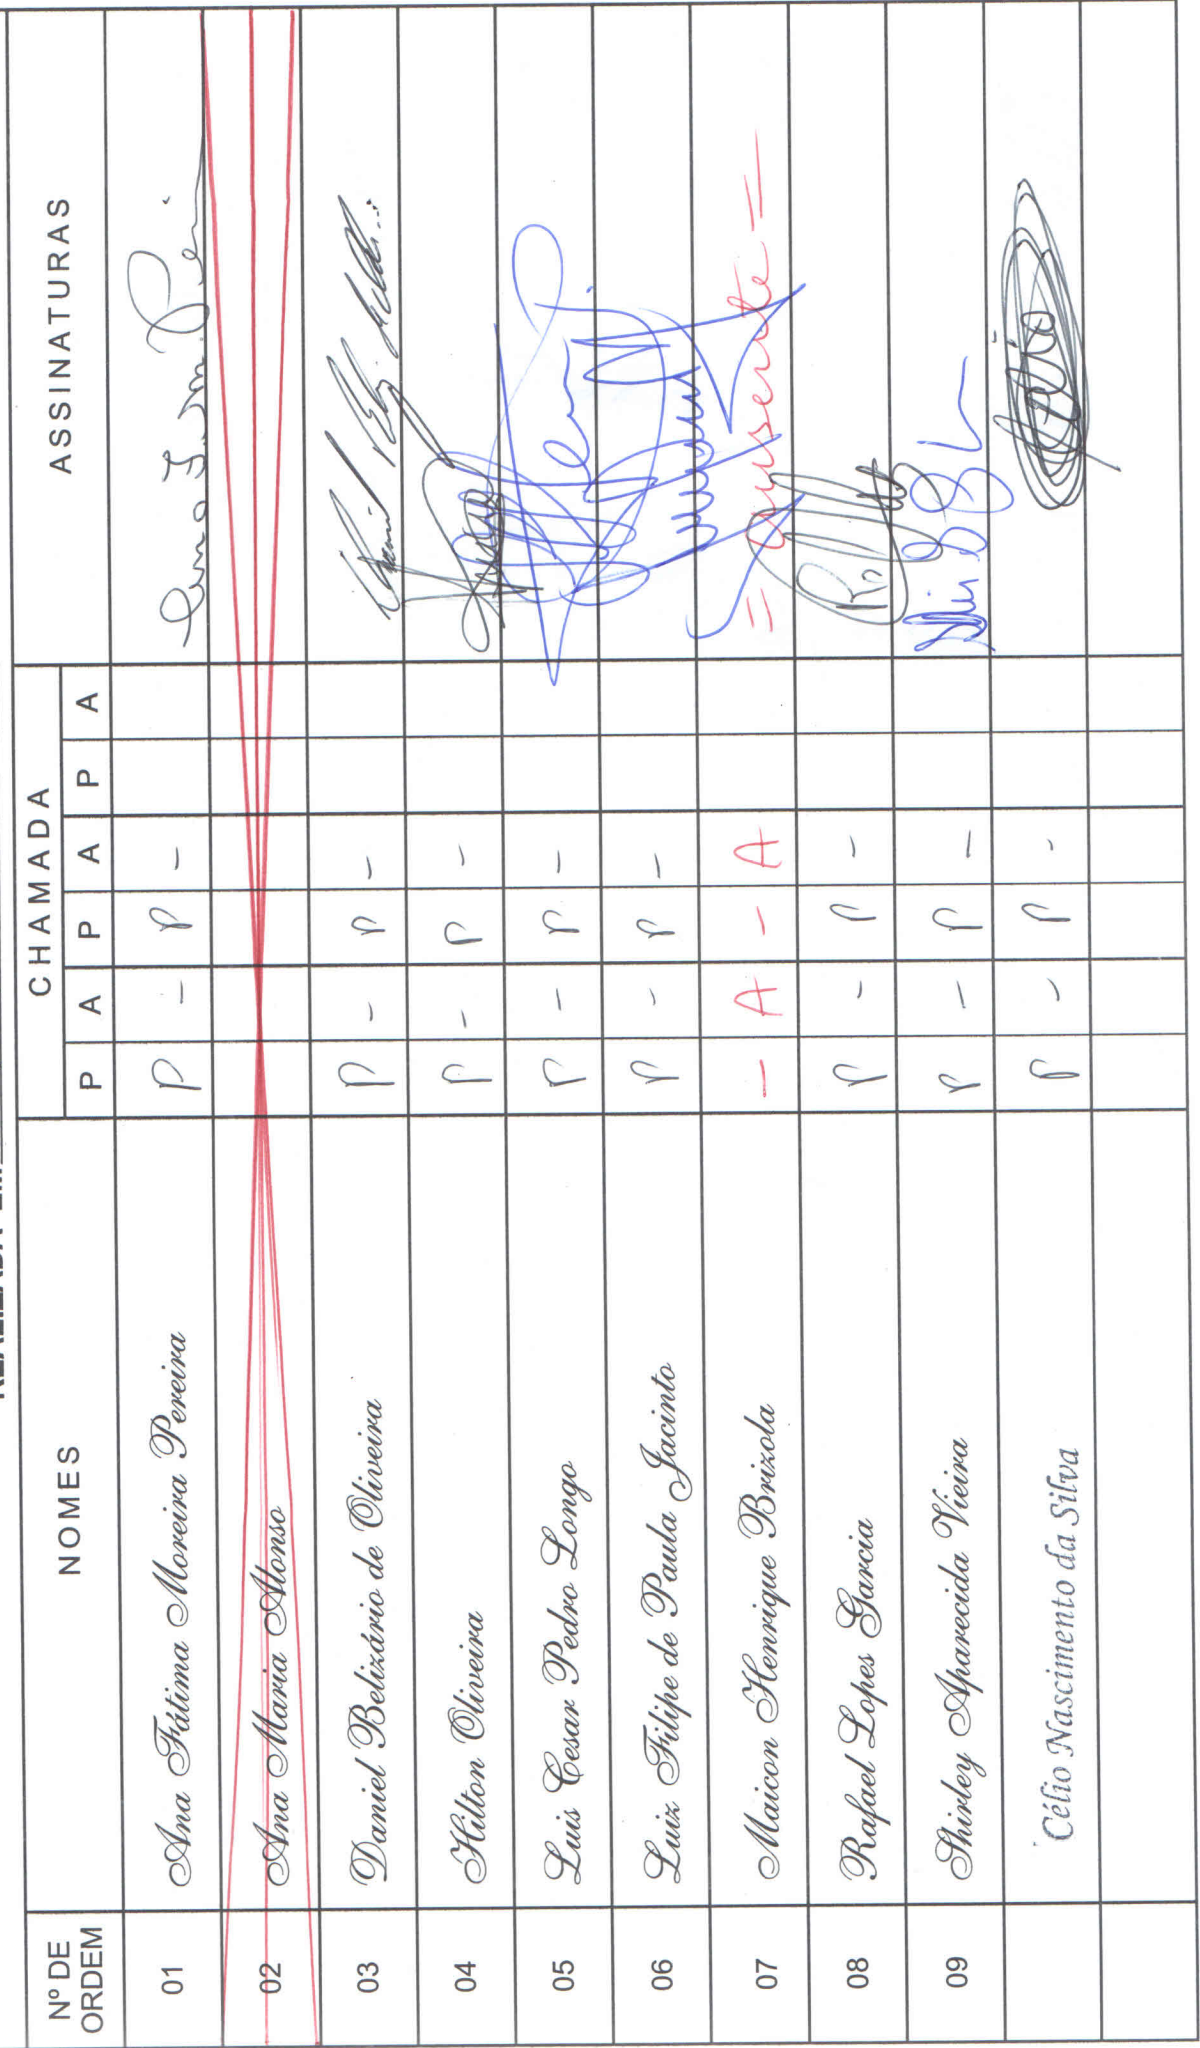 Nº DE ORDEM NOMES CHAMADA ASSINATURAS
P A P A P A
01 Ana Fátima Moreira Pereira P - P -
02 Ana Maria Alonso
03 Daniel Belizário de Oliveira P - P -
04 Hilton Oliveira P - P -
05 Luis Cesar Pedro Longo P - P -
06 Luiz Filipe de Paula Jacinto P - P -
07 Maicon Henrique Brizola - A - A = ausente =
08 Rafael Lopes Garcia P - P -
09 Shirley Aparecida Vieira P - P -
Célio Nascimento da Silva P - P -